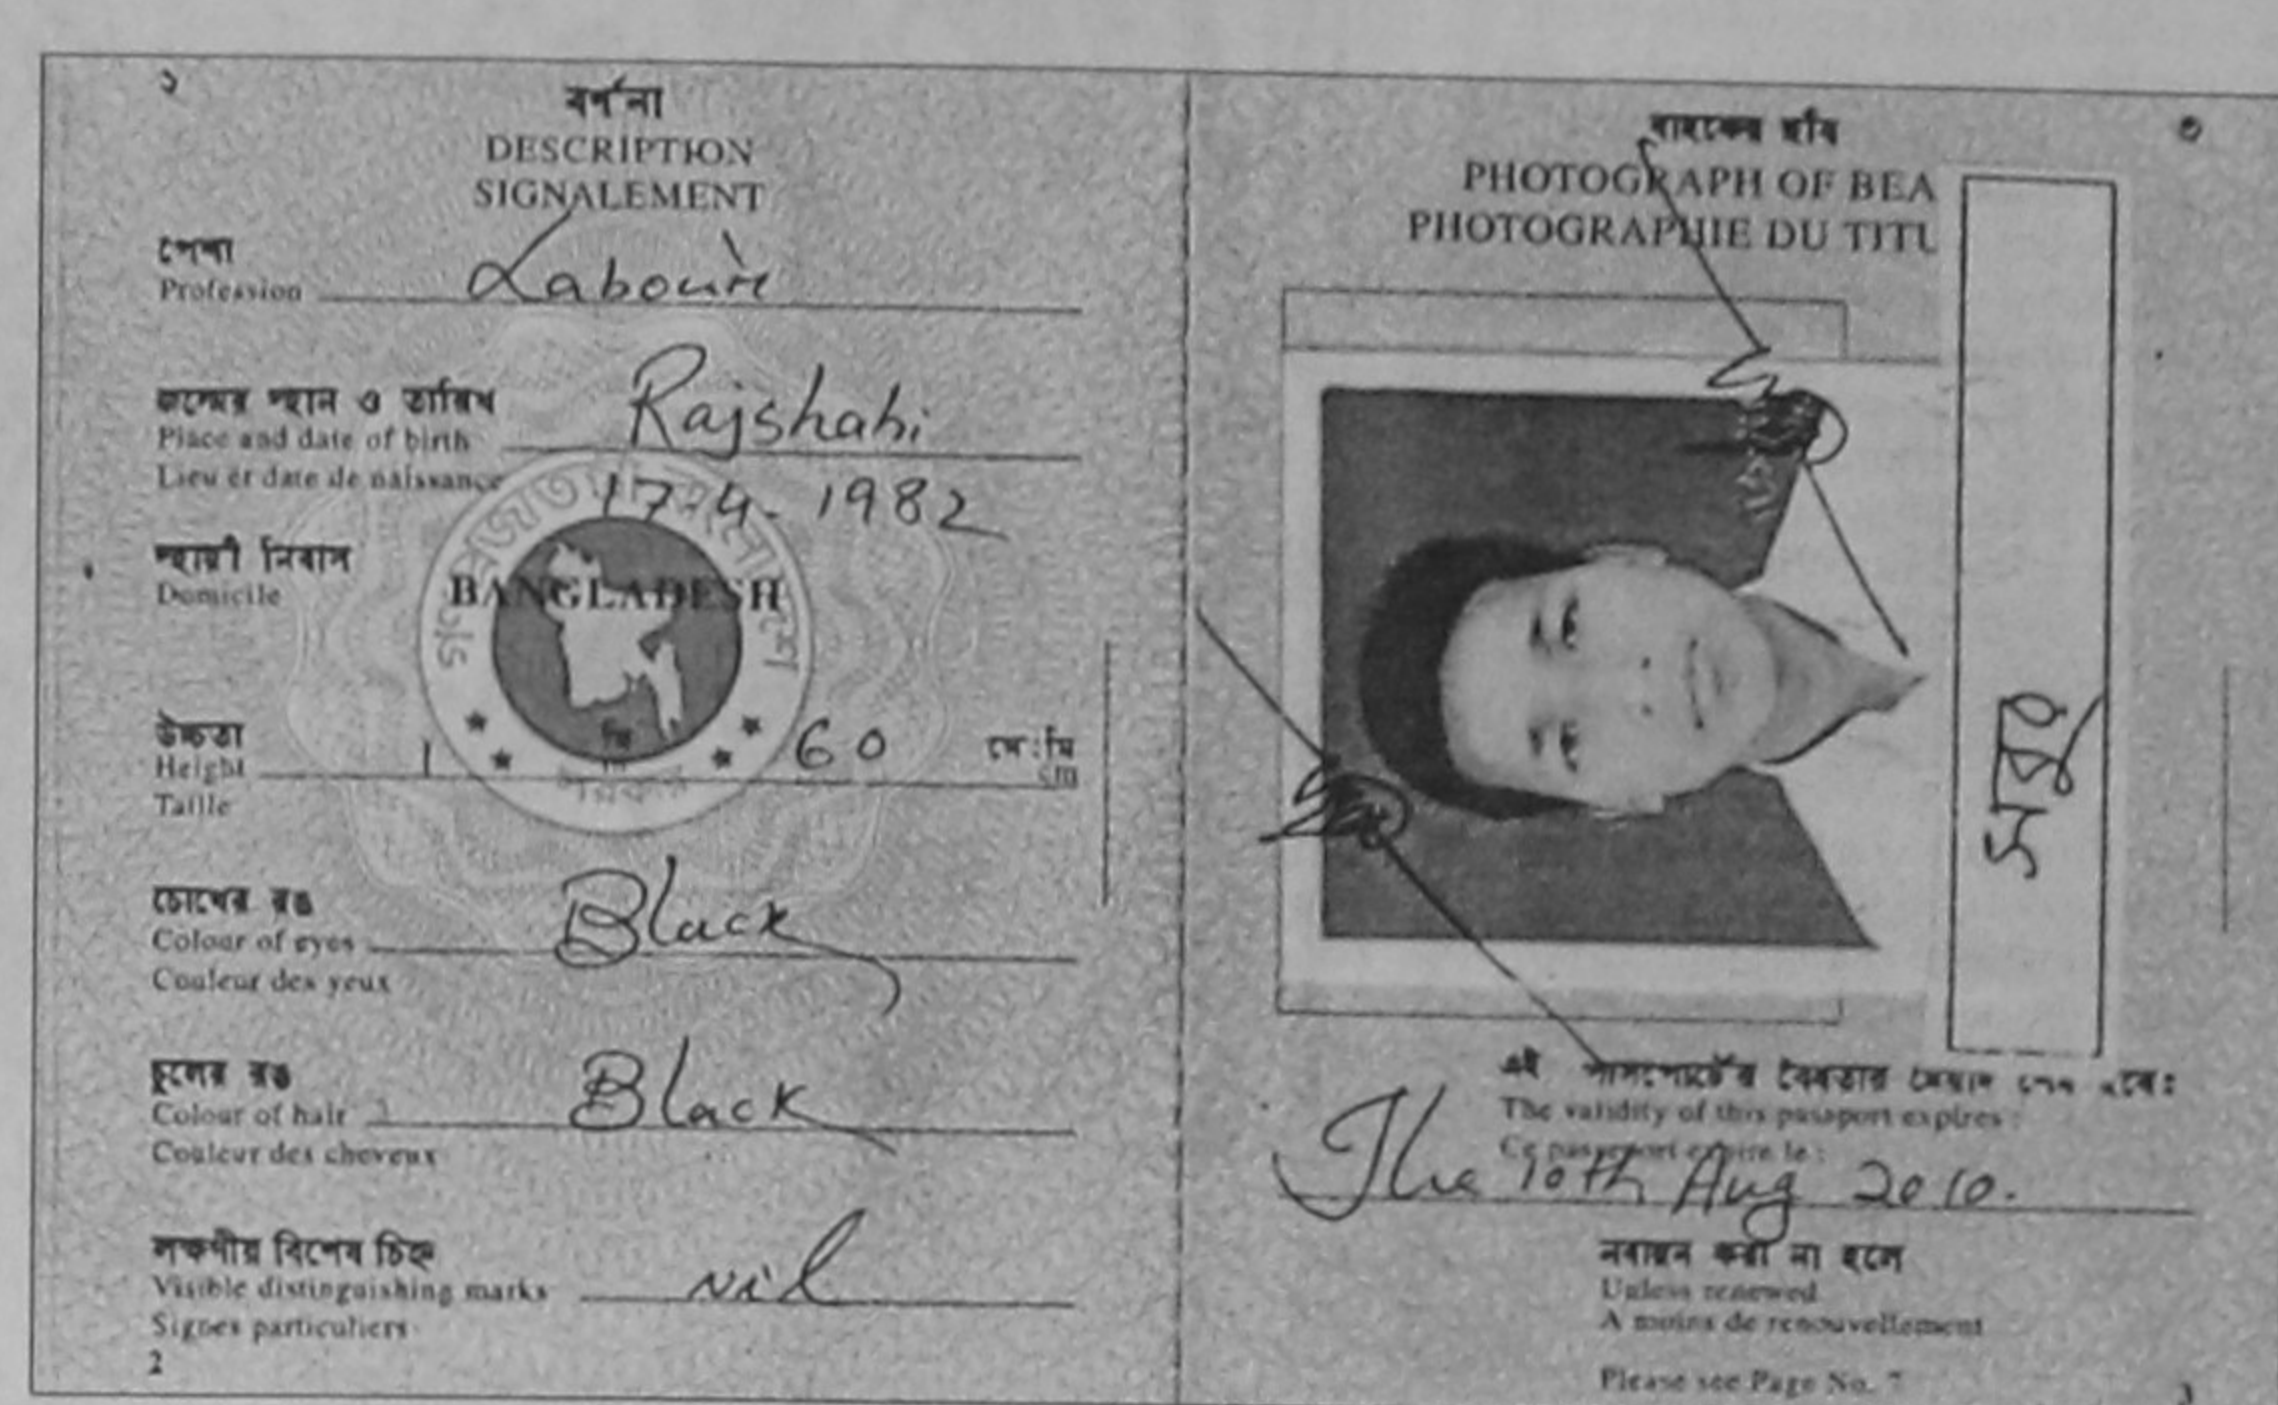 ২
বর্ণনা
DESCRIPTION
SIGNALEMENT
পেশা
Profession Labour
জন্মের স্থান ও তারিখ
Place and date of birth Rajshahi
Lieu et date de naissance 17-4-1982
স্থায়ী নিবাস
Domicile BANGLADESH
উচ্চতা
Height 1 মি 60 সে:মি
m cm
Taille
চোখের রঙ
Colour of eyes Black
Couleur des yeux
চুলের রঙ
Colour of hair Black
Couleur des cheveux
লক্ষণীয় বিশেষ চিহ্ন
Visible distinguishing marks nil
Signes particuliers
2
৩
বাহকের ছবি
PHOTOGRAPH OF BEA
PHOTOGRAPHIE DU TITU
এই পাসপোর্টের বৈধতার মেয়াদ শেষ হবে:
The validity of this passport expires :
Ce passeport expire le :
The 10th Aug 2010.
নবায়ন করা না হলে
Unless renewed
A moins de renouvellement
Please see Page No. 7
3